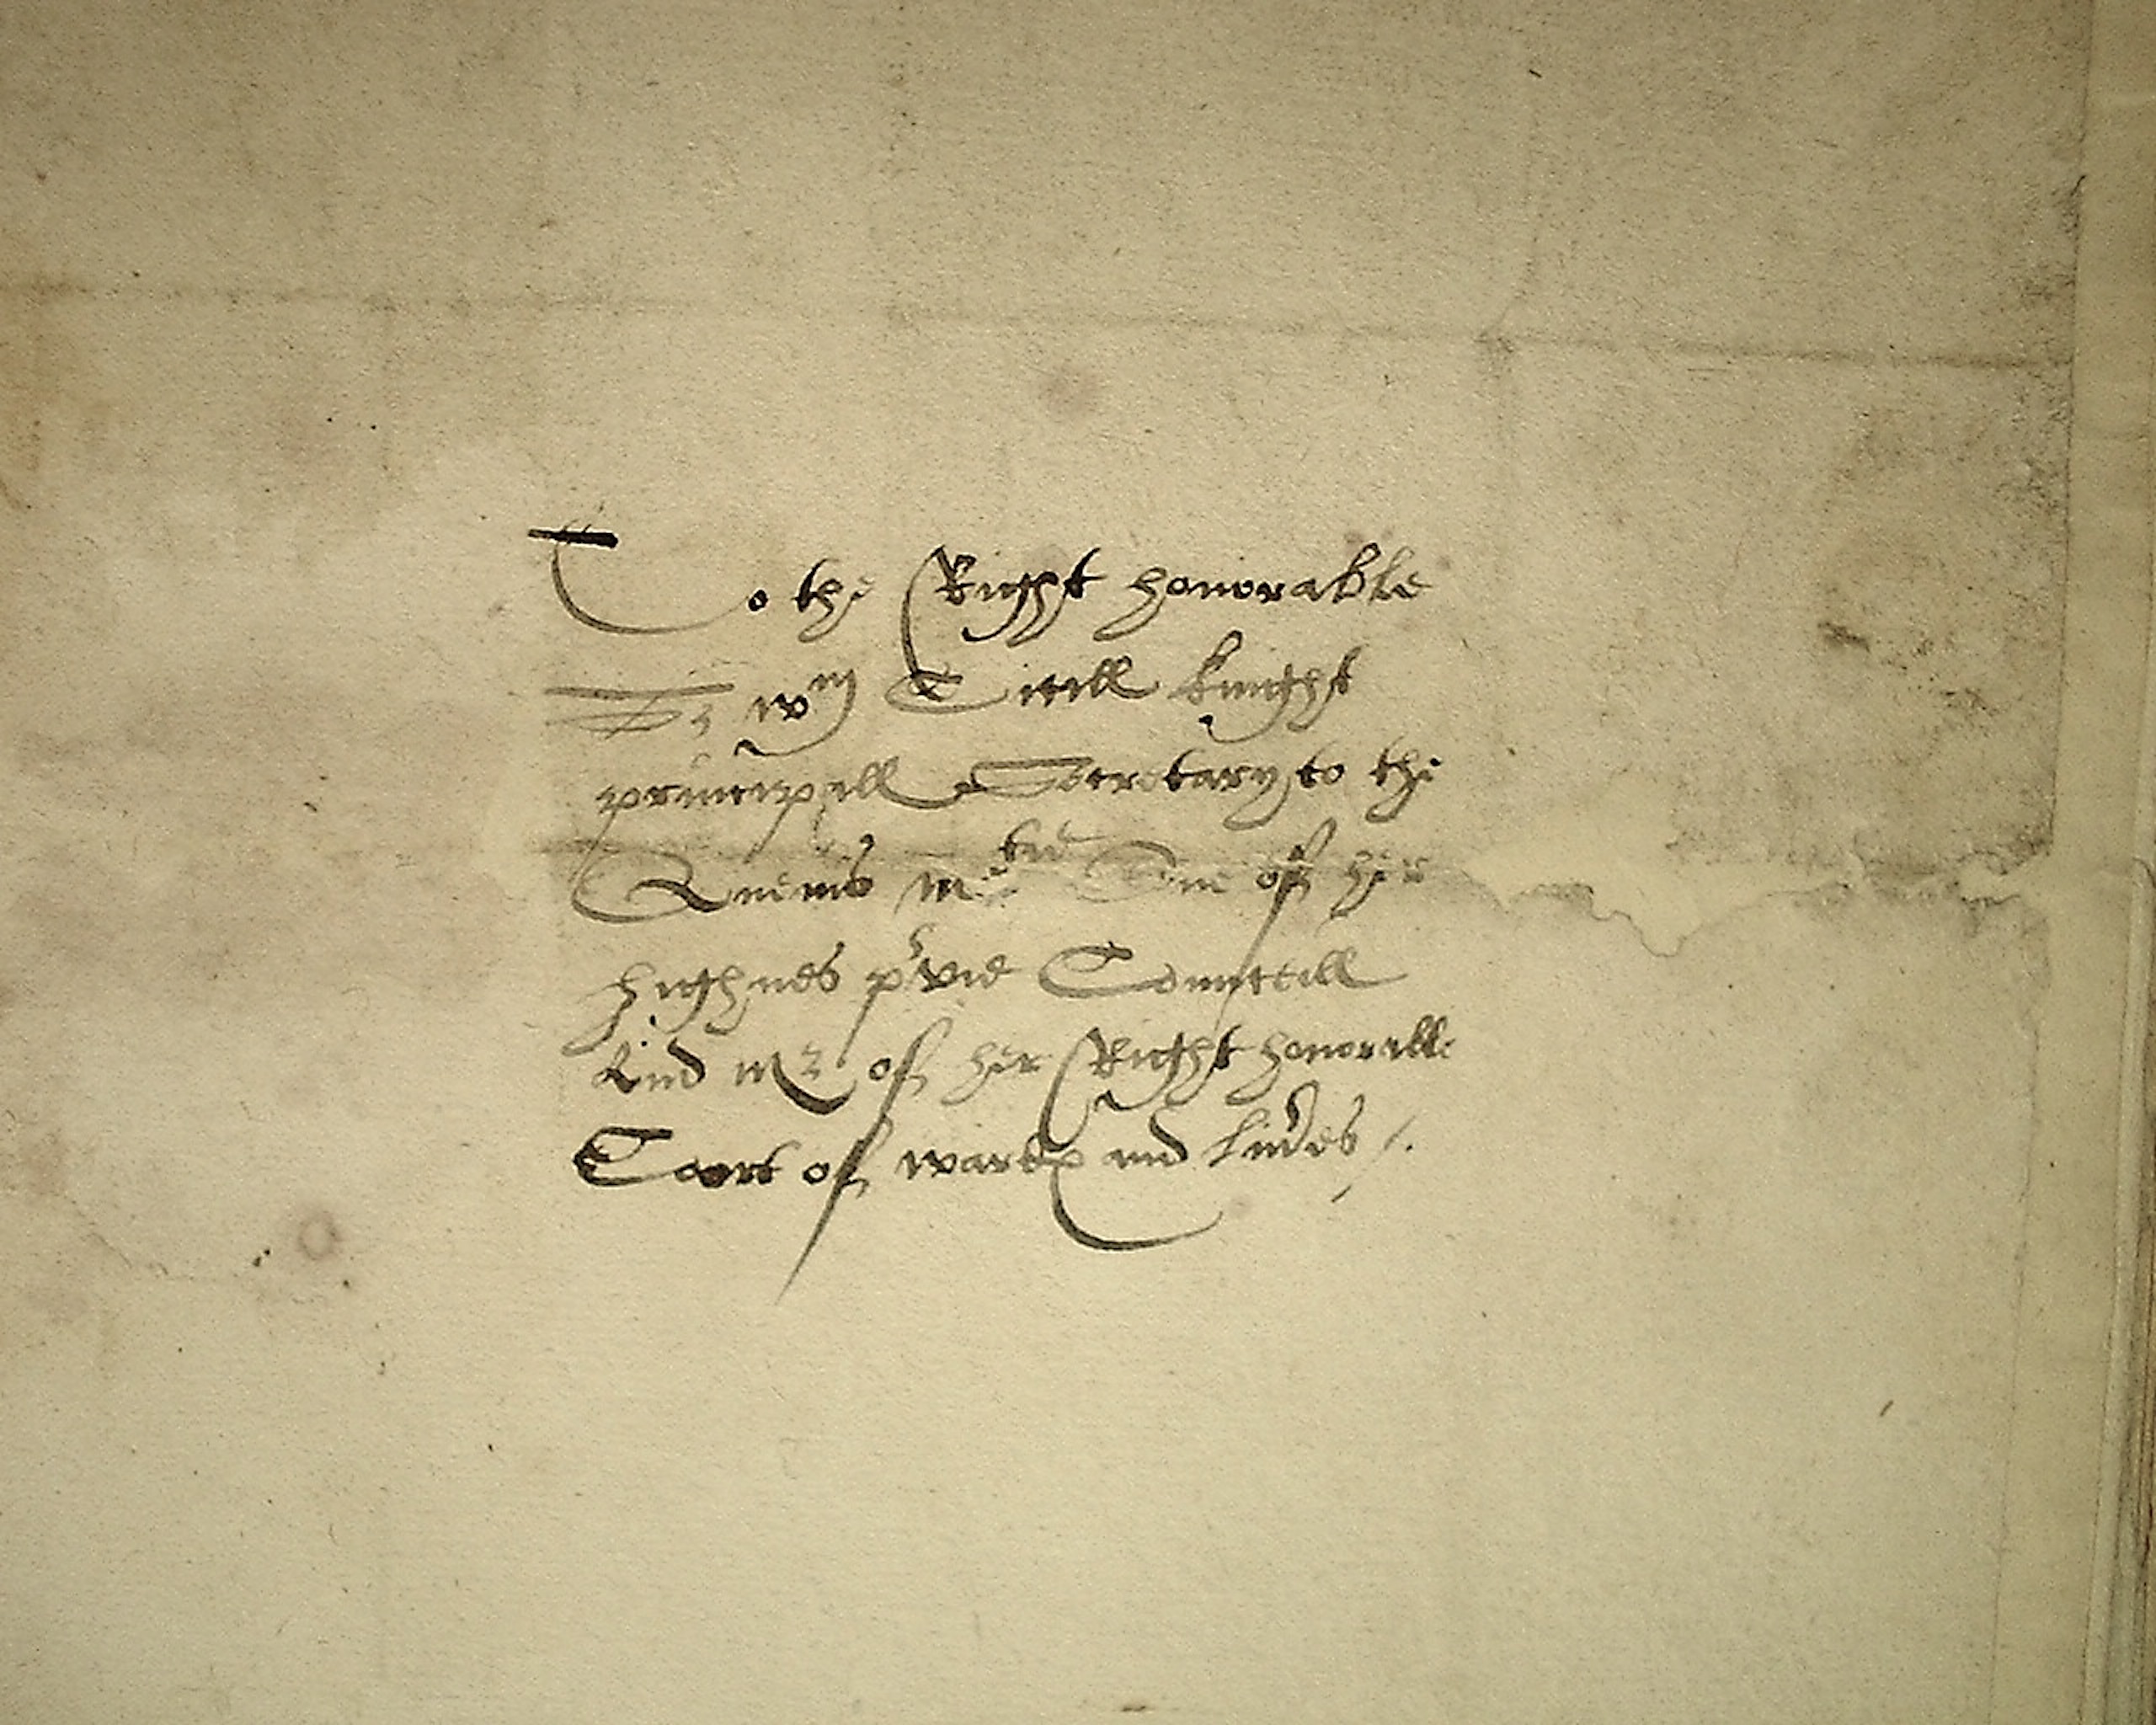 To the Right honorable
Sr Wm Cicill knight
principall Secretary to the
Quenes matie One of her
highnes pryvie Counccill
And mr of her Right honorable
Court of wardes and Liveries /.